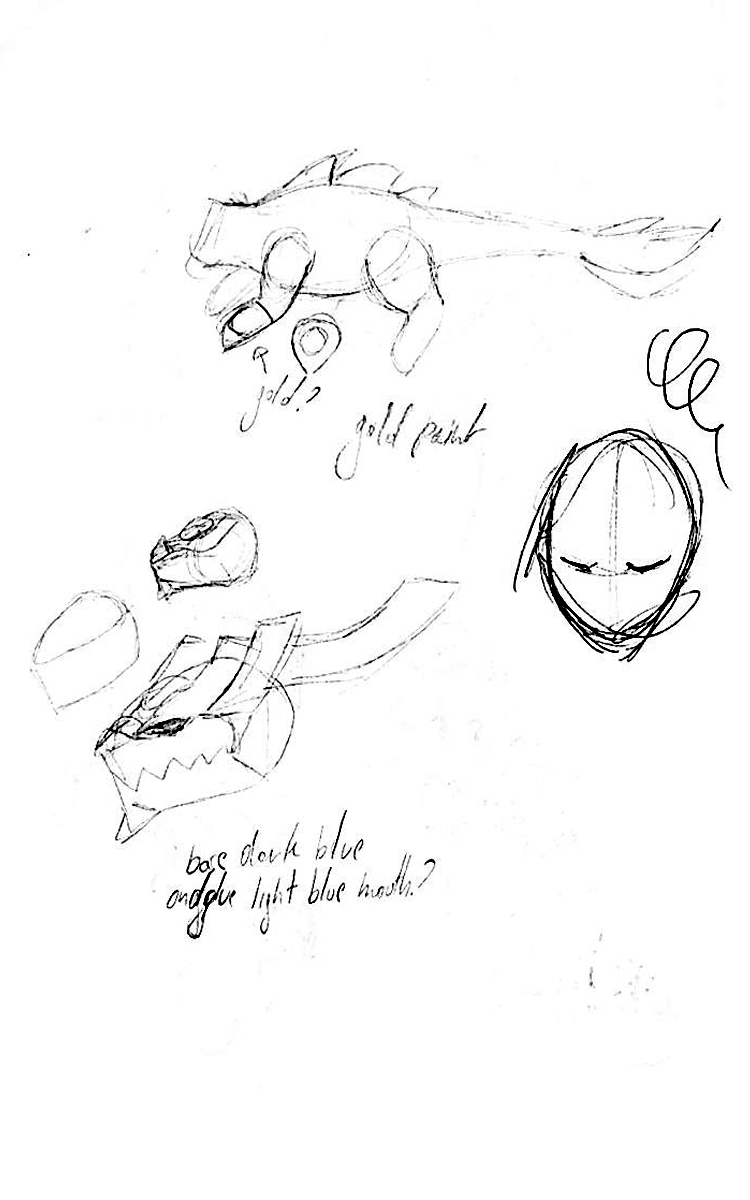 gold?
gold paint
base dark blue
and glue light blue mouth?